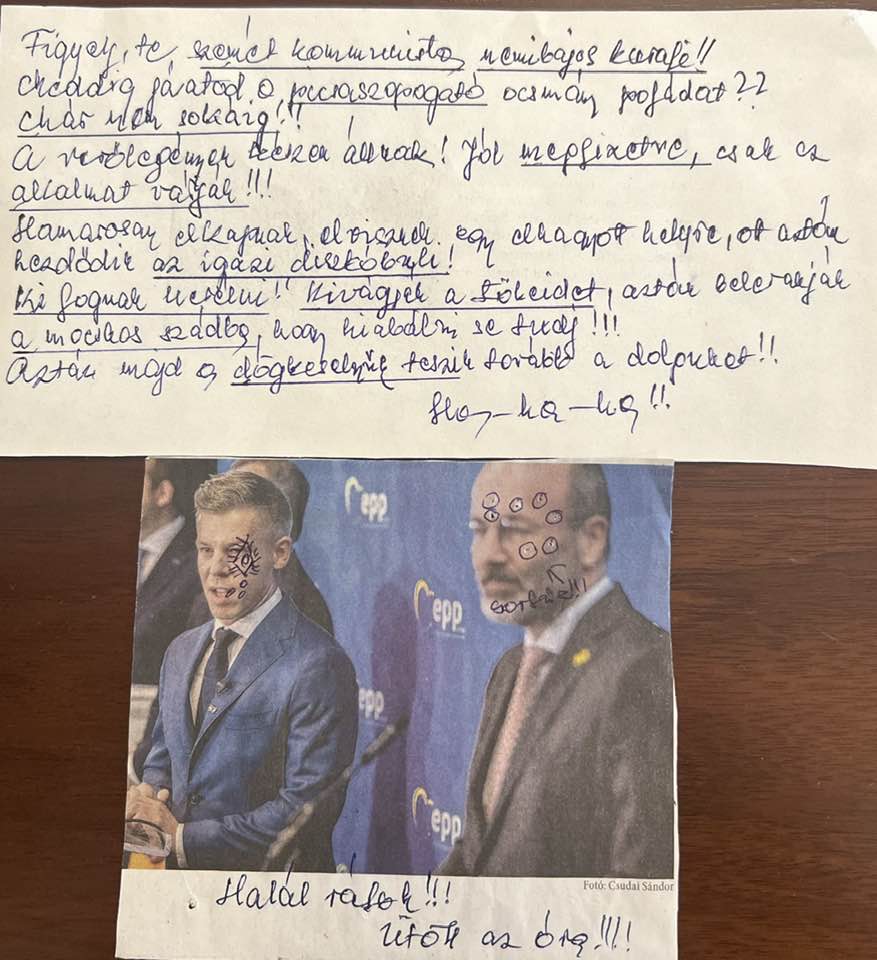 Figyelj, te, szemét kommunista, nemibajos kurafi!!
Meddig járatod a picsaszopogató ocsmány pofádat??
Már nem sokáig!!!
A verőlegények készen állnak! Jól megfizetve, csak az
alkalmat várják!!!
Hamarosan elkapnak, elvisznek egy elhagyot helyre, ot aztán
kezdődik az igazi
Ki fognak herélni!! Kivágják a tökeidet, aztán belerakják
a mocskos szádba, hogy kiabálni se tudj!!!
Aztán majd a dögkeselyűk teszik tovább a dolgukat!!
Ha-ha-ha!!
epp
epp
epp
epp
sortűz!!!
Fotó: Csudai Sándor
Halál rátok!!!
Ütött az óra!!!!